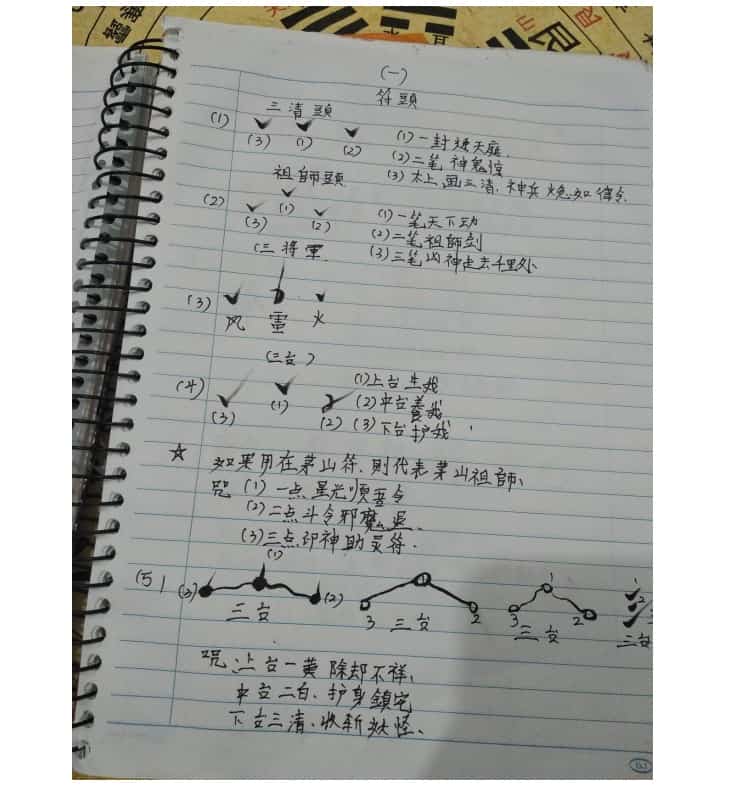 (一)
符頭
(1) 三清頭
(3) (1) (2)
(1) 一封燒天庭.
(2) 二笔神鬼惊
(3) 太上画三清.神兵火急如律令.
祖師頭
(2) (3) (1) (2)
(1) 一笔天下动
(2) 二笔祖師剑
(3) 三笔凶神走去千里外
(三将軍
(3)
风 雷 火
(三台)
(4) (3) (1) (2)
(1) 上台生我
(2) 中台養我
(3) 下台护我
☆ 如果用在茅山符.則代表茅山祖師、
咒 (1) 一点星光順吾令
(2) 二点斗令邪魔退.
(3) 三点印神助灵符.
(5) (3) (1) (2)
三台
3 1 2
三台
3 1 2
三台
1 2 3
三台
咒:上台一黄 除却不祥,
中台二白、护身鎮宅
下台三清、收斬妖怪、
艮